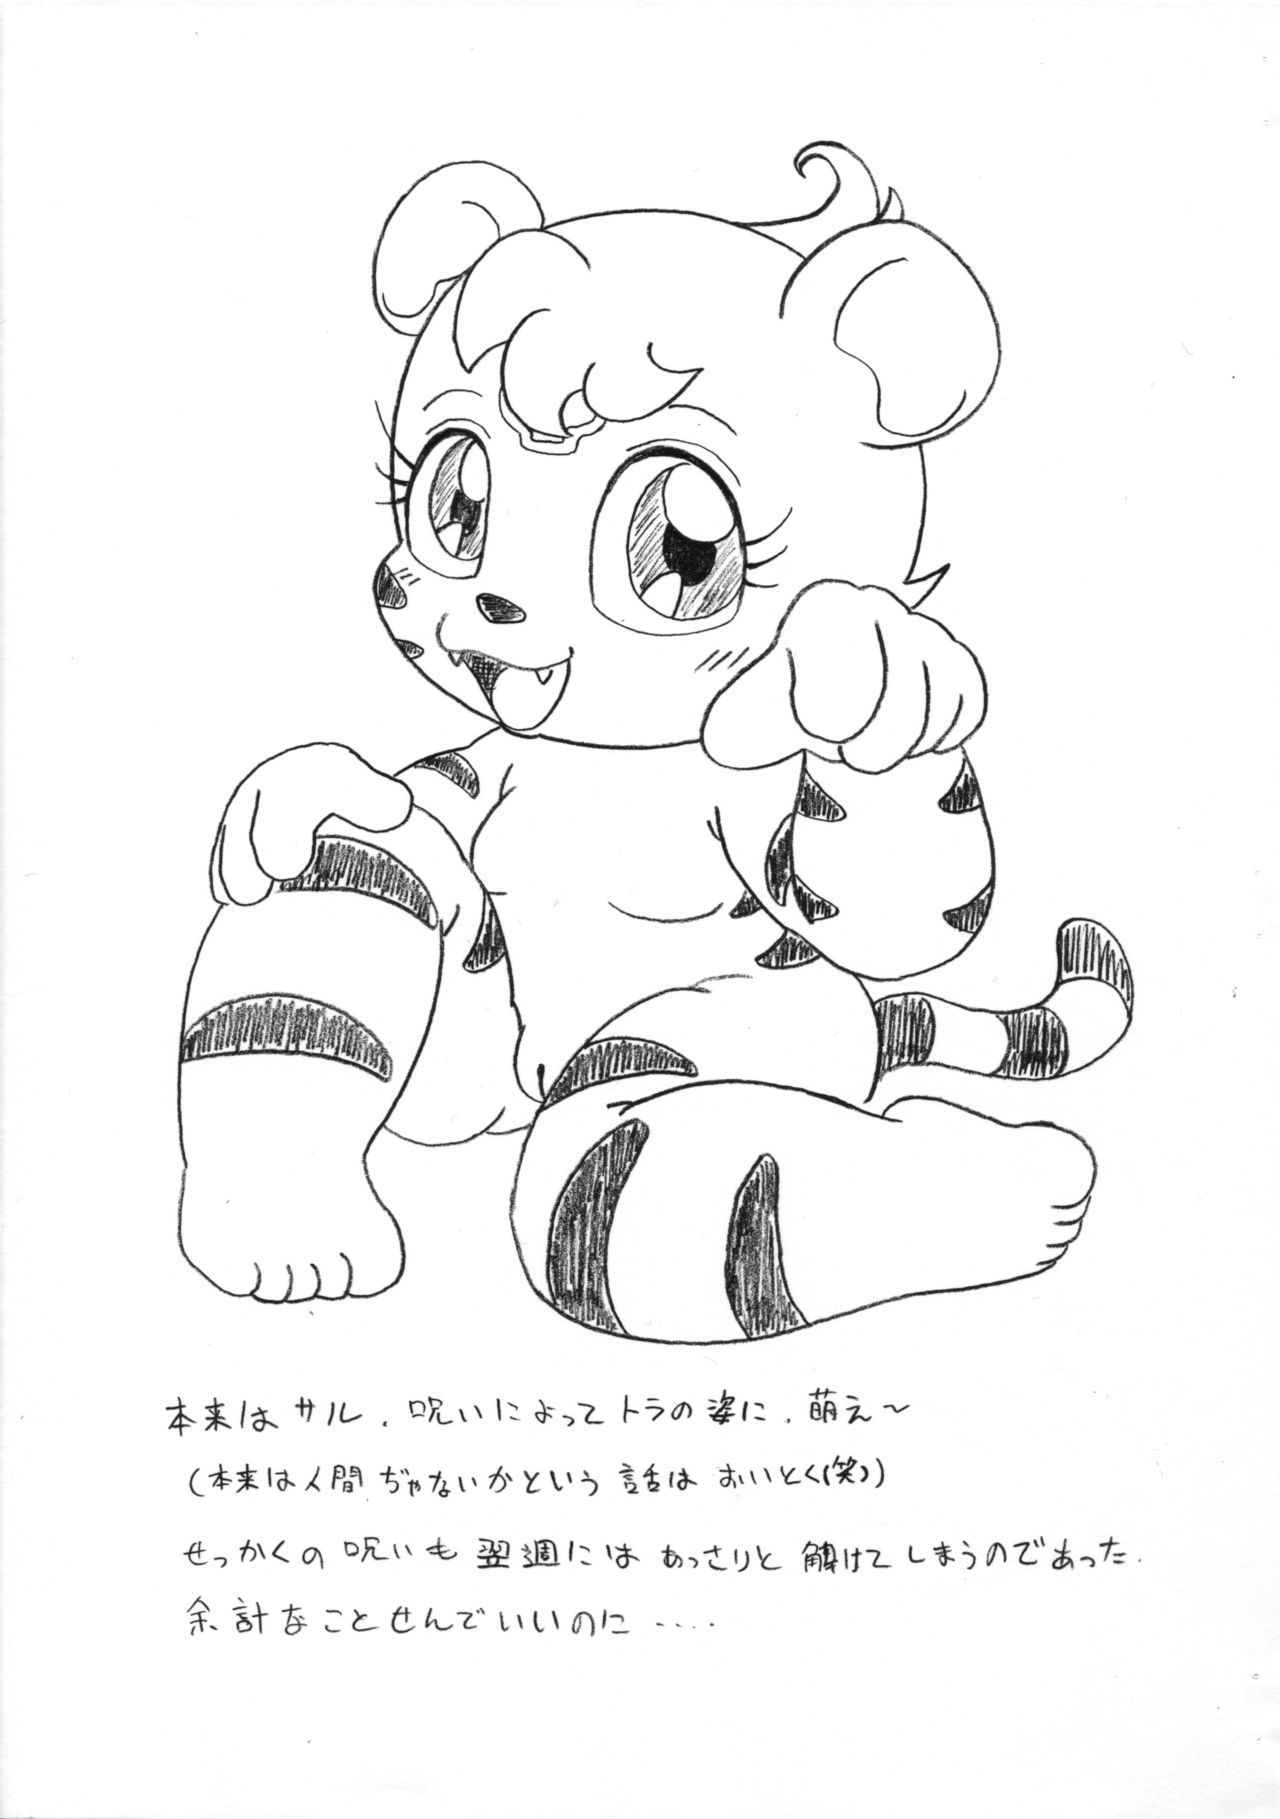 本来はサル、呪いによってトラの姿に、萌え～
(本来は人間ぢゃないかという話はおいとく(笑))
せっかくの呪いも翌週にはあっさりと解けてしまうのであった.
余計なことせんでいいのに....